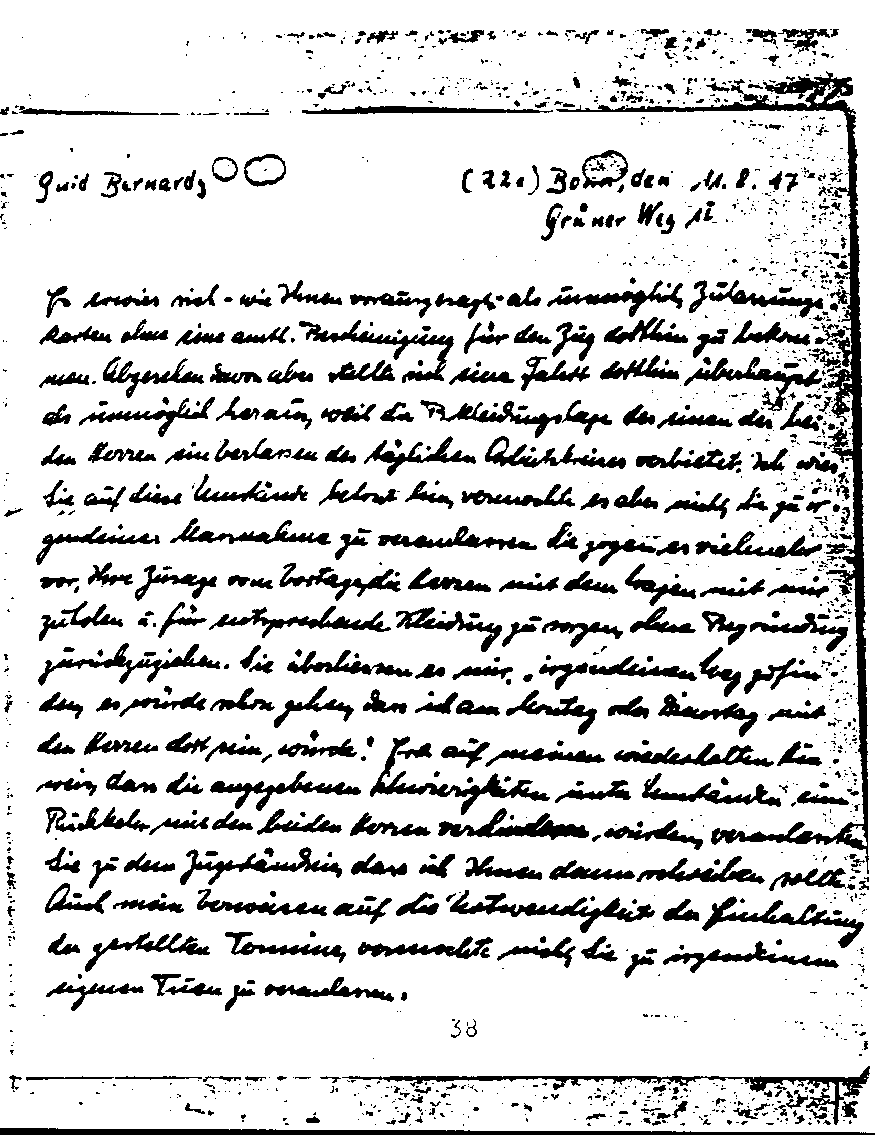 Guid Bernardy (22c) Bonn, den 11. 8. 47
Grüner Weg 11
Es erwies sich - wie Ihnen vorausgesagt - als unmöglich, Zulassungs-
karten ohne eine amtl. Bescheinigung für den Zug dorthin zu bekom-
men. Abgesehen davon aber stellte sich eine Fahrt dorthin überhaupt
als unmöglich heraus, weil die Bekleidungslage des einen der bei-
den Herren ein Verlassen des täglichen Arbeitskreises verbietet. Ich wies
Sie auf diese Umstände betont hin, vermochte es aber nicht, Sie zu ir-
gendeiner Massnahme zu veranlassen. Sie zogen es vielmehr
vor, Ihre Zusage vom Vortage, die Herren mit dem Wagen mit mir
zu holen u. für entsprechende Kleidung zu sorgen, ohne Begründung
zurückzuziehen. Sie überliessen es mir, "irgendeinen Weg zu fin-
den, es würde schon gehen, dass ich am Montag oder Dienstag mit
den Herren dort sein würde! Erst auf meinen wiederholten Hin-
weis, dass die angegebenen Schwierigkeiten unter Umständen eine
Rückkehr mit den beiden Herren verhindern würden, veranlassten
Sie zu dem Zugeständnis, dass ich Ihnen dann schreiben sollte.
Auch mein Verweisen auf die Notwendigkeit der Einhaltung
der gestellten Termine, vermochte nicht, Sie zu irgendeinem
eigenen Tuen zu veranlassen.
38